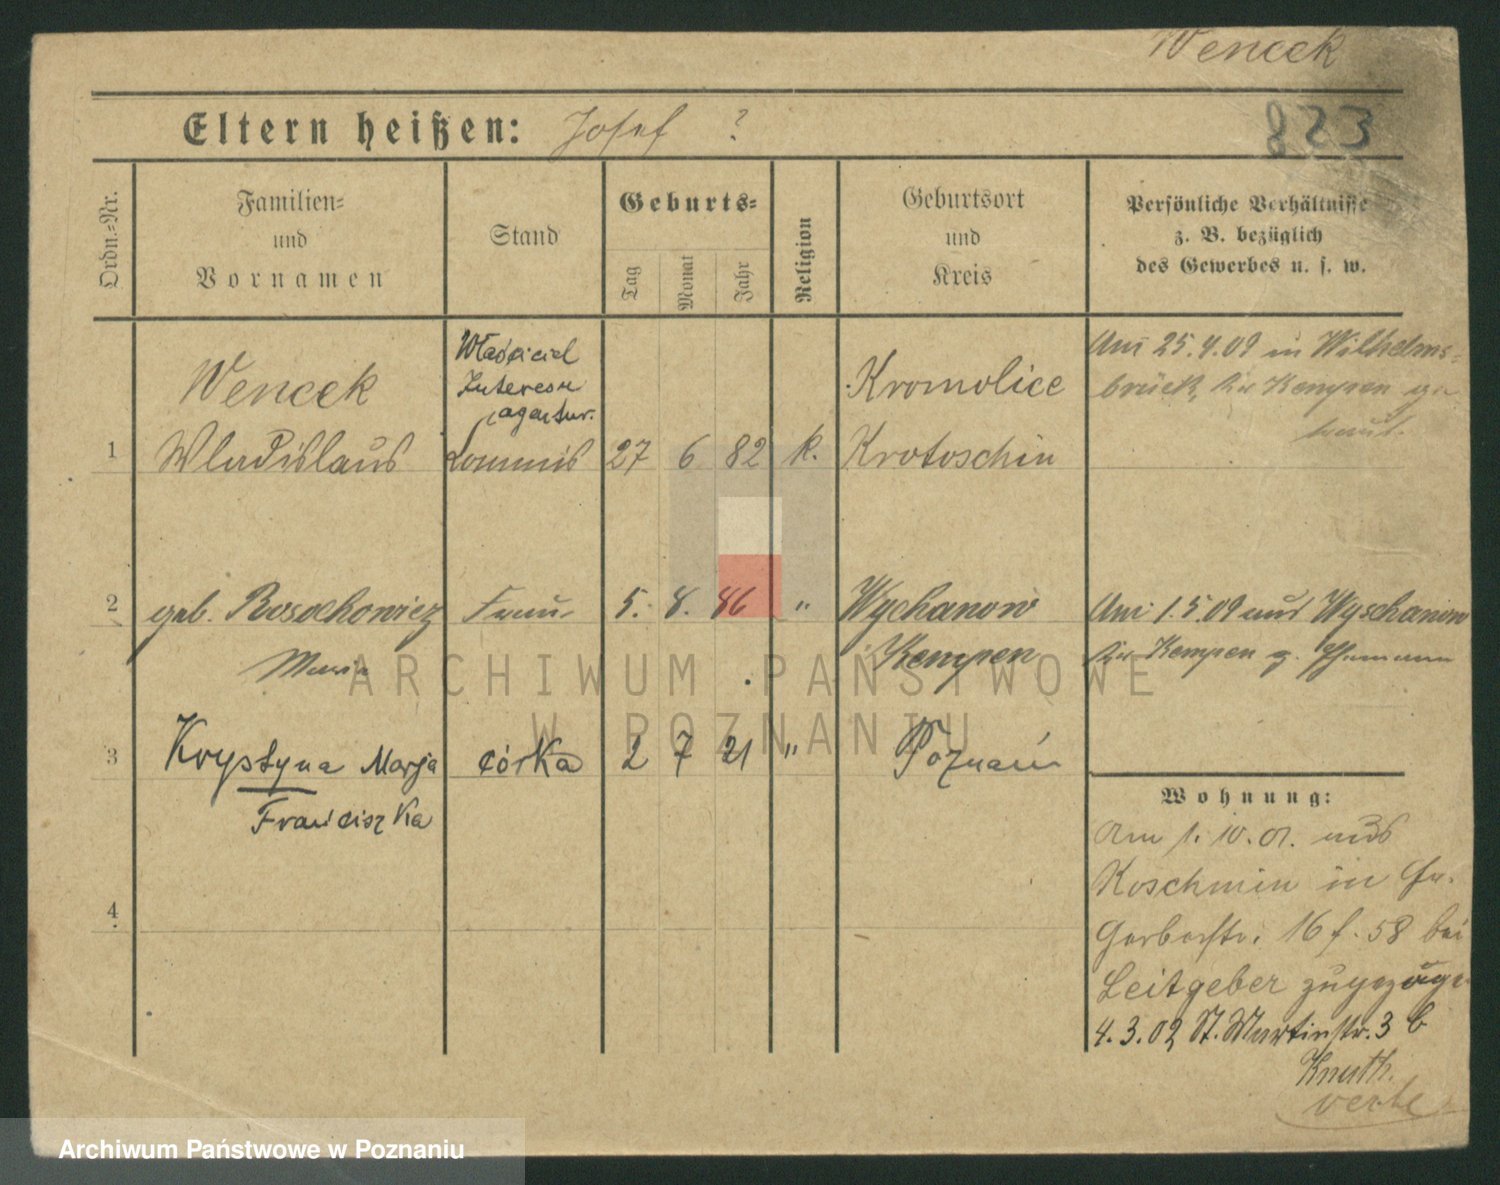 Wencek
823
Eltern heißen: Josef ?
Ordn.=Nr.
Familien=
und
Vornamen
Stand
Geburts=
Tag
Monat
Jahr
Religion
Geburtsort
und
Kreis
Persönliche Verhältnisse
z. B. bezüglich
des Gewerbes u. s. w.
1
Wencek
Wladislaus
Właściciel
Interesu
agentur.
Commis
27 6 82 k.
Kromolice
Krotoschin
Am 25.4.09 in Wilhelms=
brück, Kr Kempen ge
traut.
2 geb. Rosochowicz Frau 5. 8. 86 " Wychanow
Maria
Kempen
Am 1.5.09 aus Wyschanow
Kr Kempen z.
3 Krystyna Marja córka 2 7 21 " Poznań
Franciszka
4
Wohnung:
Am 1. 10. 01. aus
Koschmin in
Gerberstr. 16 f. 58 bei
Leitgeber zugezogen
4.3.02 St. Martinstr. 3 b
Knuth.
ARCHIWUM PAŃSTWOWE
W POZNANIU
Archiwum Państwowe w Poznaniu